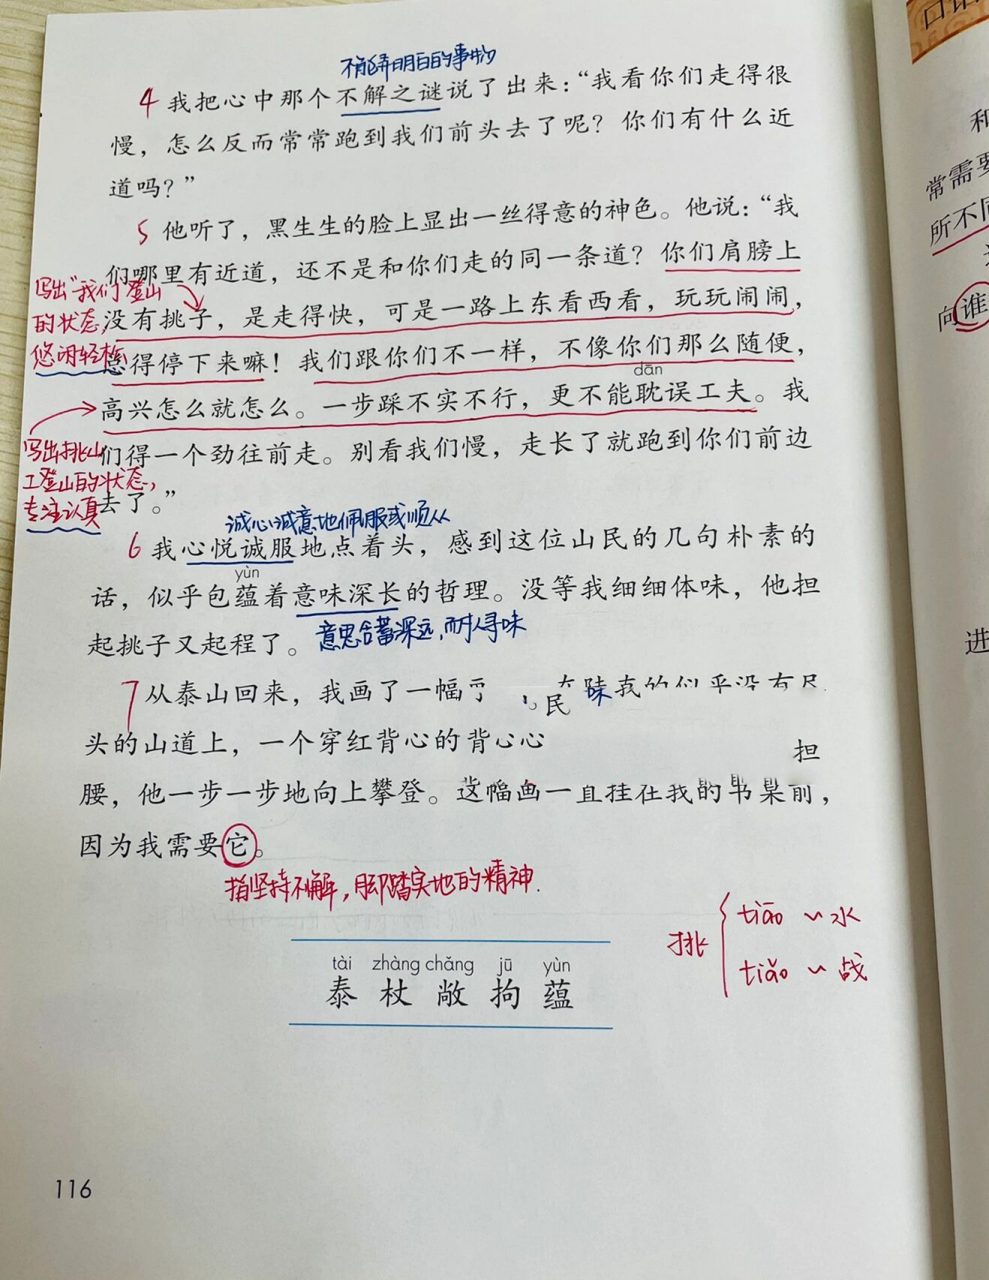 不能弄明白的事物
4 我把心中那个不解之谜说了出来：“我看你们走得很
慢，怎么反而常常跑到我们前头去了呢？你们有什么近
道吗？”
5 他听了，黑生生的脸上显出一丝得意的神色。他说：“我
们哪里有近道，还不是和你们走的同一条道？你们肩膀上
写出“我们”登山
的状态，
悠闲轻松
没有挑子，是走得快，可是一路上东看西看，玩玩闹闹，
总得停下来嘛！我们跟你们不一样，不像你们那么随便，
dān
高兴怎么就怎么。一步踩不实不行，更不能耽误工夫。我
写出挑山
工登山的状态，
专注认真
们得一个劲往前走。别看我们慢，走长了就跑到你们前边
去了。”
诚心诚意地佩服或顺从
6 我心悦诚服地点着头，感到这位山民的几句朴素的
yùn
话，似乎包蕴着意味深长的哲理。没等我细细体味，他担
起挑子又起程了。
意思含蓄深远，耐人寻味
7 从泰山回来，我画了一幅
民
头的山道上，一个穿红背心的背心心
担
腰，他一步一步地向上攀登。这幅画一直挂在我的书桌前，
因为我需要它。
指坚持不懈，脚踏实地的精神.
挑 tiāo ~水
tiǎo ~战
tài zhàng chǎng jū yùn
泰 杖 敞 拘 蕴
116
口语
和
常需要
所不同
向谁
进